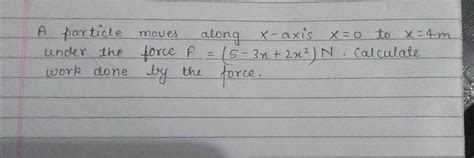 A particle moves along x-axis x=0 to x=4m
under the force F = (5-3x+2x²) N. Calculate
work done by the force.